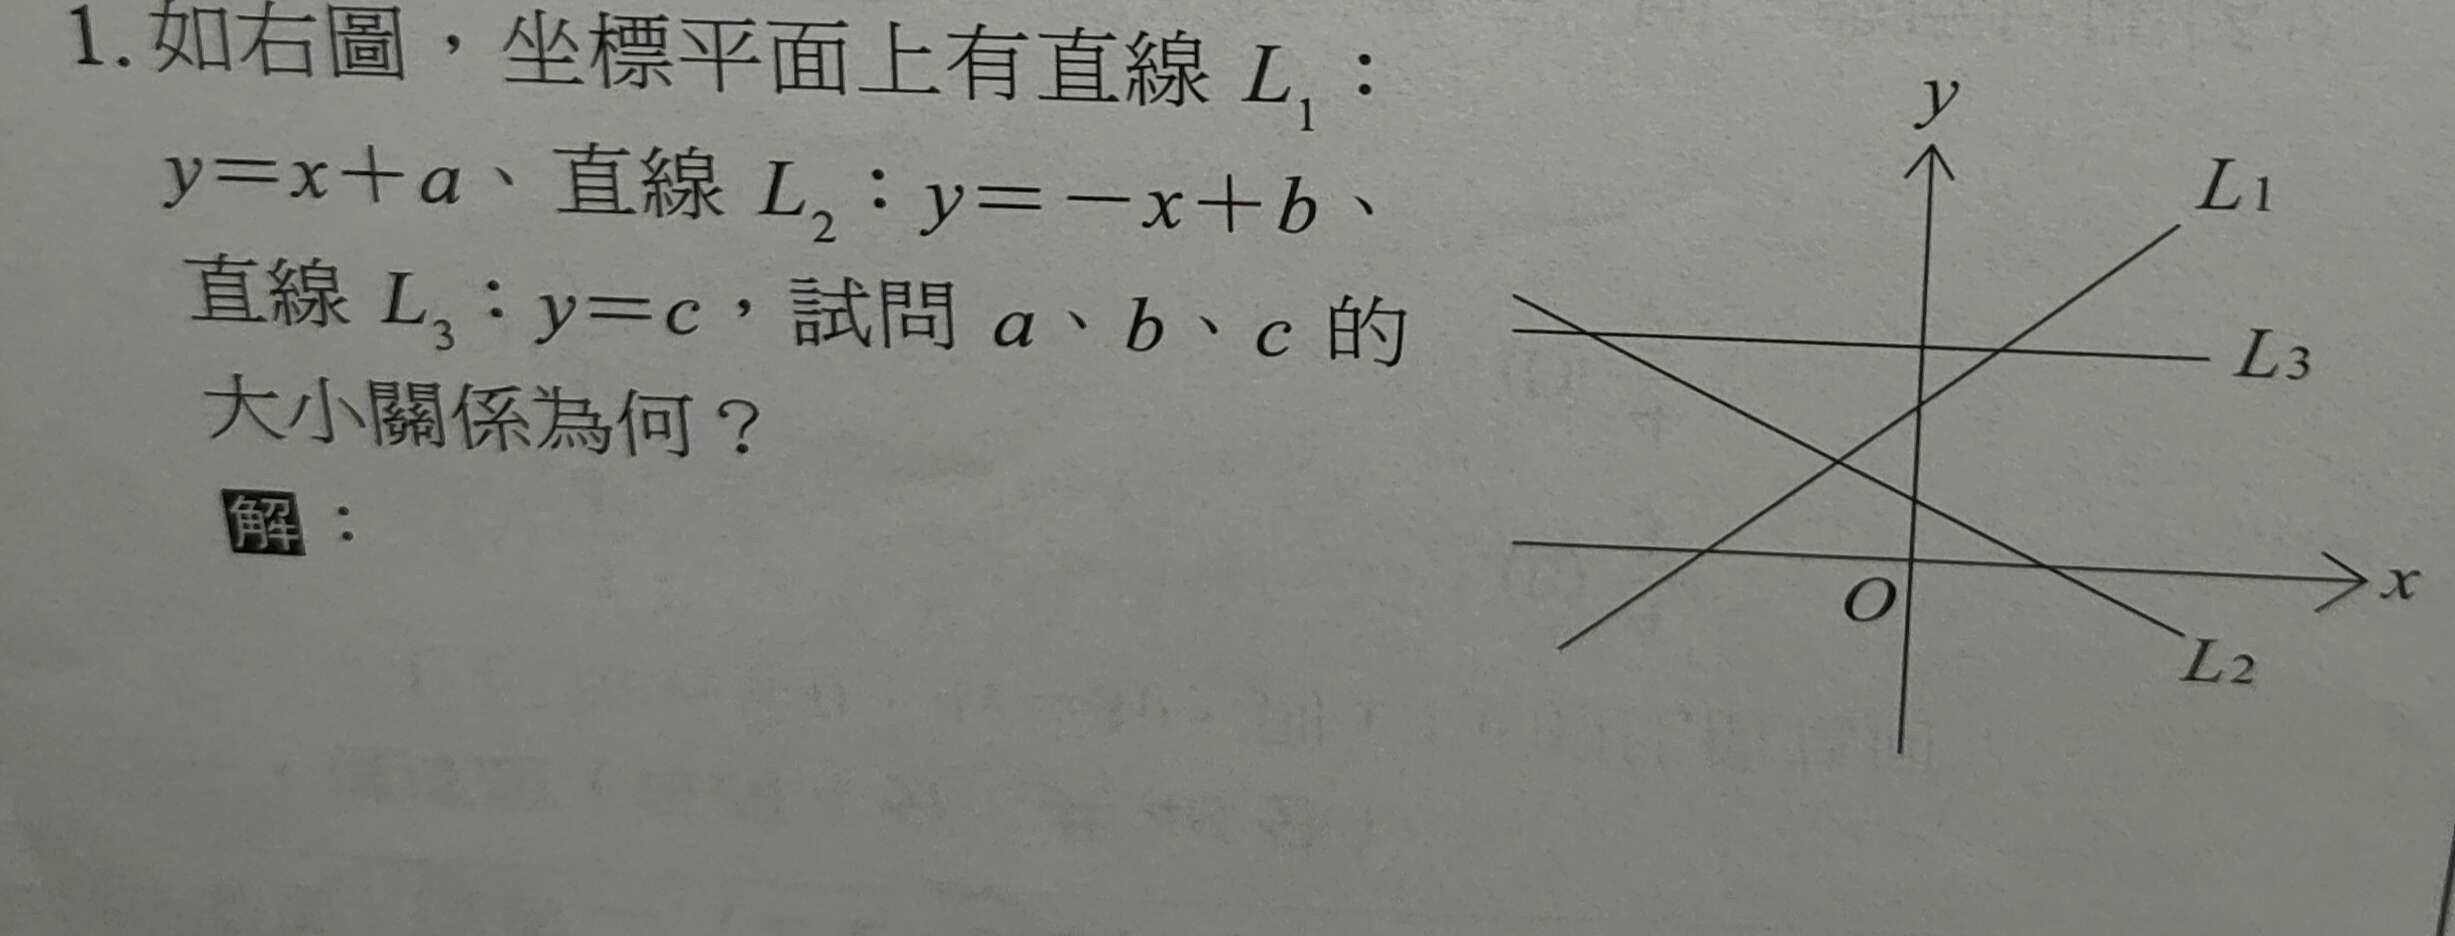 1. 如右圖，坐標平面上有直線 L₁：
y＝x＋a、直線 L₂：y＝－x＋b、
直線 L₃：y＝c，試問 a、b、c 的
大小關係為何？
解：
y
L1
L3
O
x
L2